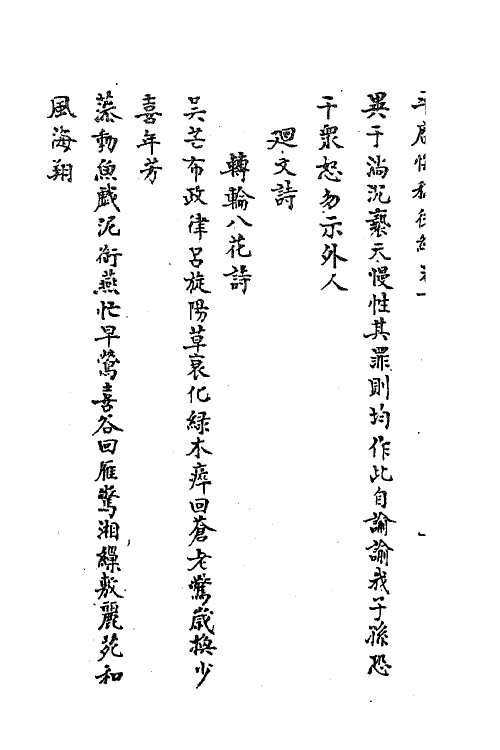 異于湎沉褻天慢性其罪則均作此自諭諭我子孫恐
干衆怒勿示外人
廻文詩
轉輪八花詩
吴芒布政律呂旋陽草衰化綠木瘁回蒼老驚歲換少
喜年芳
藻動魚戲泥銜燕忙早鶯喜谷回雁驚湘繰敷麗苑和
風海翔